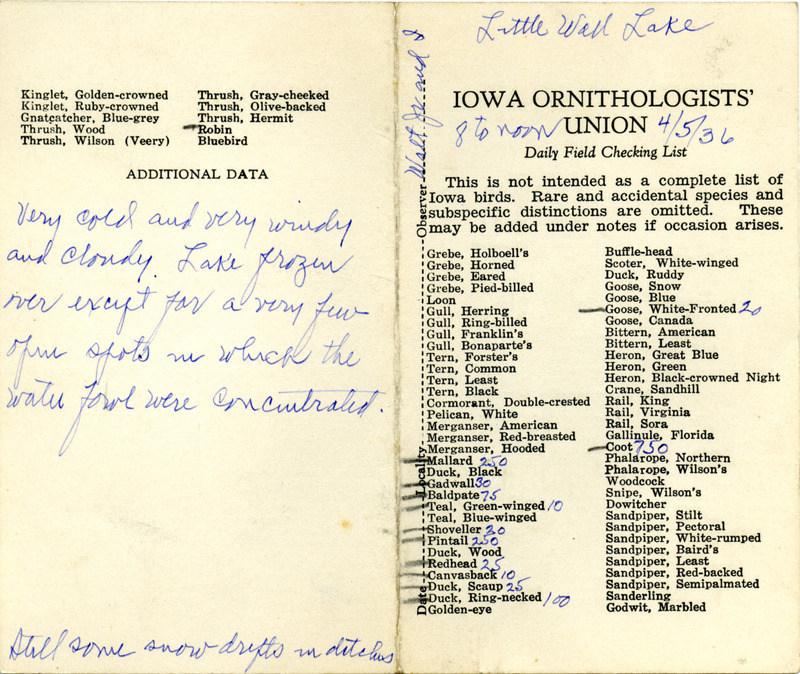 Kinglet, Golden-crowned
Kinglet, Ruby-crowned
Gnatcatcher, Blue-grey
Thrush, Wood
Thrush, Wilson (Veery)
Thrush, Gray-cheeked
Thrush, Olive-backed
Thrush, Hermit
Robin
Bluebird
ADDITIONAL DATA
Very cold and very windy
and cloudy. Lake frozen
over except for a very few
open spots in which the
water fowl were concentrated.
Still some snow drifts in ditches
Little Wall Lake
IOWA ORNITHOLOGISTS'
8 to noon UNION 4/5/36
Daily Field Checking List
Observer Walt Jr. and I
Locality
Date
This is not intended as a complete list of
Iowa birds. Rare and accidental species and
subspecific distinctions are omitted. These
may be added under notes if occasion arises.
Grebe, Holboell's
Grebe, Horned
Grebe, Eared
Grebe, Pied-billed
Loon
Gull, Herring
Gull, Ring-billed
Gull, Franklin's
Gull, Bonaparte's
Tern, Forster's
Tern, Common
Tern, Least
Tern, Black
Cormorant, Double-crested
Pelican, White
Merganser, American
Merganser, Red-breasted
Merganser, Hooded
Mallard 250
Duck, Black
Gadwall 30
Baldpate 75
Teal, Green-winged 10
Teal, Blue-winged
Shoveller 20
Pintail 250
Duck, Wood
Redhead 25
Canvasback 10
Duck, Scaup 25
Duck, Ring-necked 100
Golden-eye
Buffle-head
Scoter, White-winged
Duck, Ruddy
Goose, Snow
Goose, Blue
Goose, White-Fronted 20
Goose, Canada
Bittern, American
Bittern, Least
Heron, Great Blue
Heron, Green
Heron, Black-crowned Night
Crane, Sandhill
Rail, King
Rail, Virginia
Rail, Sora
Gallinule, Florida
Coot 750
Phalarope, Northern
Phalarope, Wilson's
Woodcock
Snipe, Wilson's
Dowitcher
Sandpiper, Stilt
Sandpiper, Pectoral
Sandpiper, White-rumped
Sandpiper, Baird's
Sandpiper, Least
Sandpiper, Red-backed
Sandpiper, Semipalmated
Sanderling
Godwit, Marbled